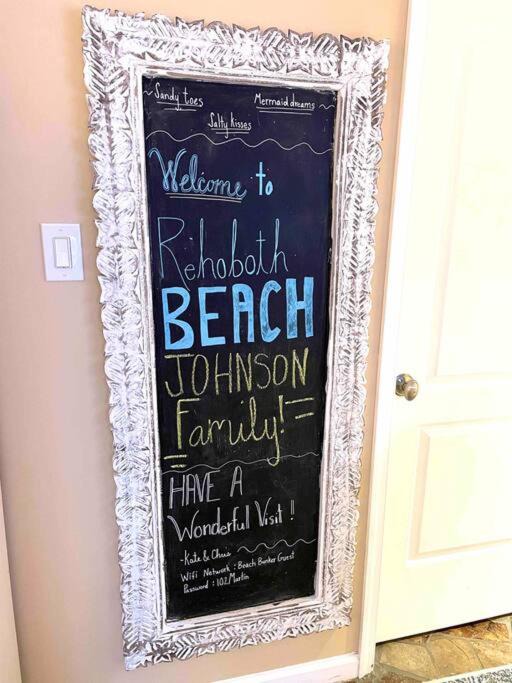 ~Sandy toes
Mermaid dreams~
Salty kisses
Welcome to
Rehoboth
BEACH
JOHNSON
Family!
HAVE A
Wonderful Visit!
-Kate & Chris
Wifi Network: Beach Bunker Guest
Password: 102Marlin